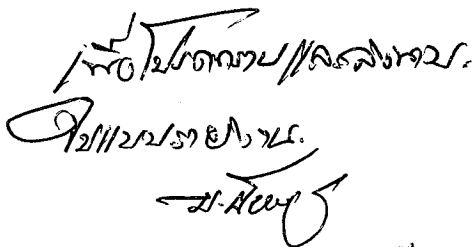 เพื่อโปรดทราบและลงนาม.
ในแบบรายงาน.